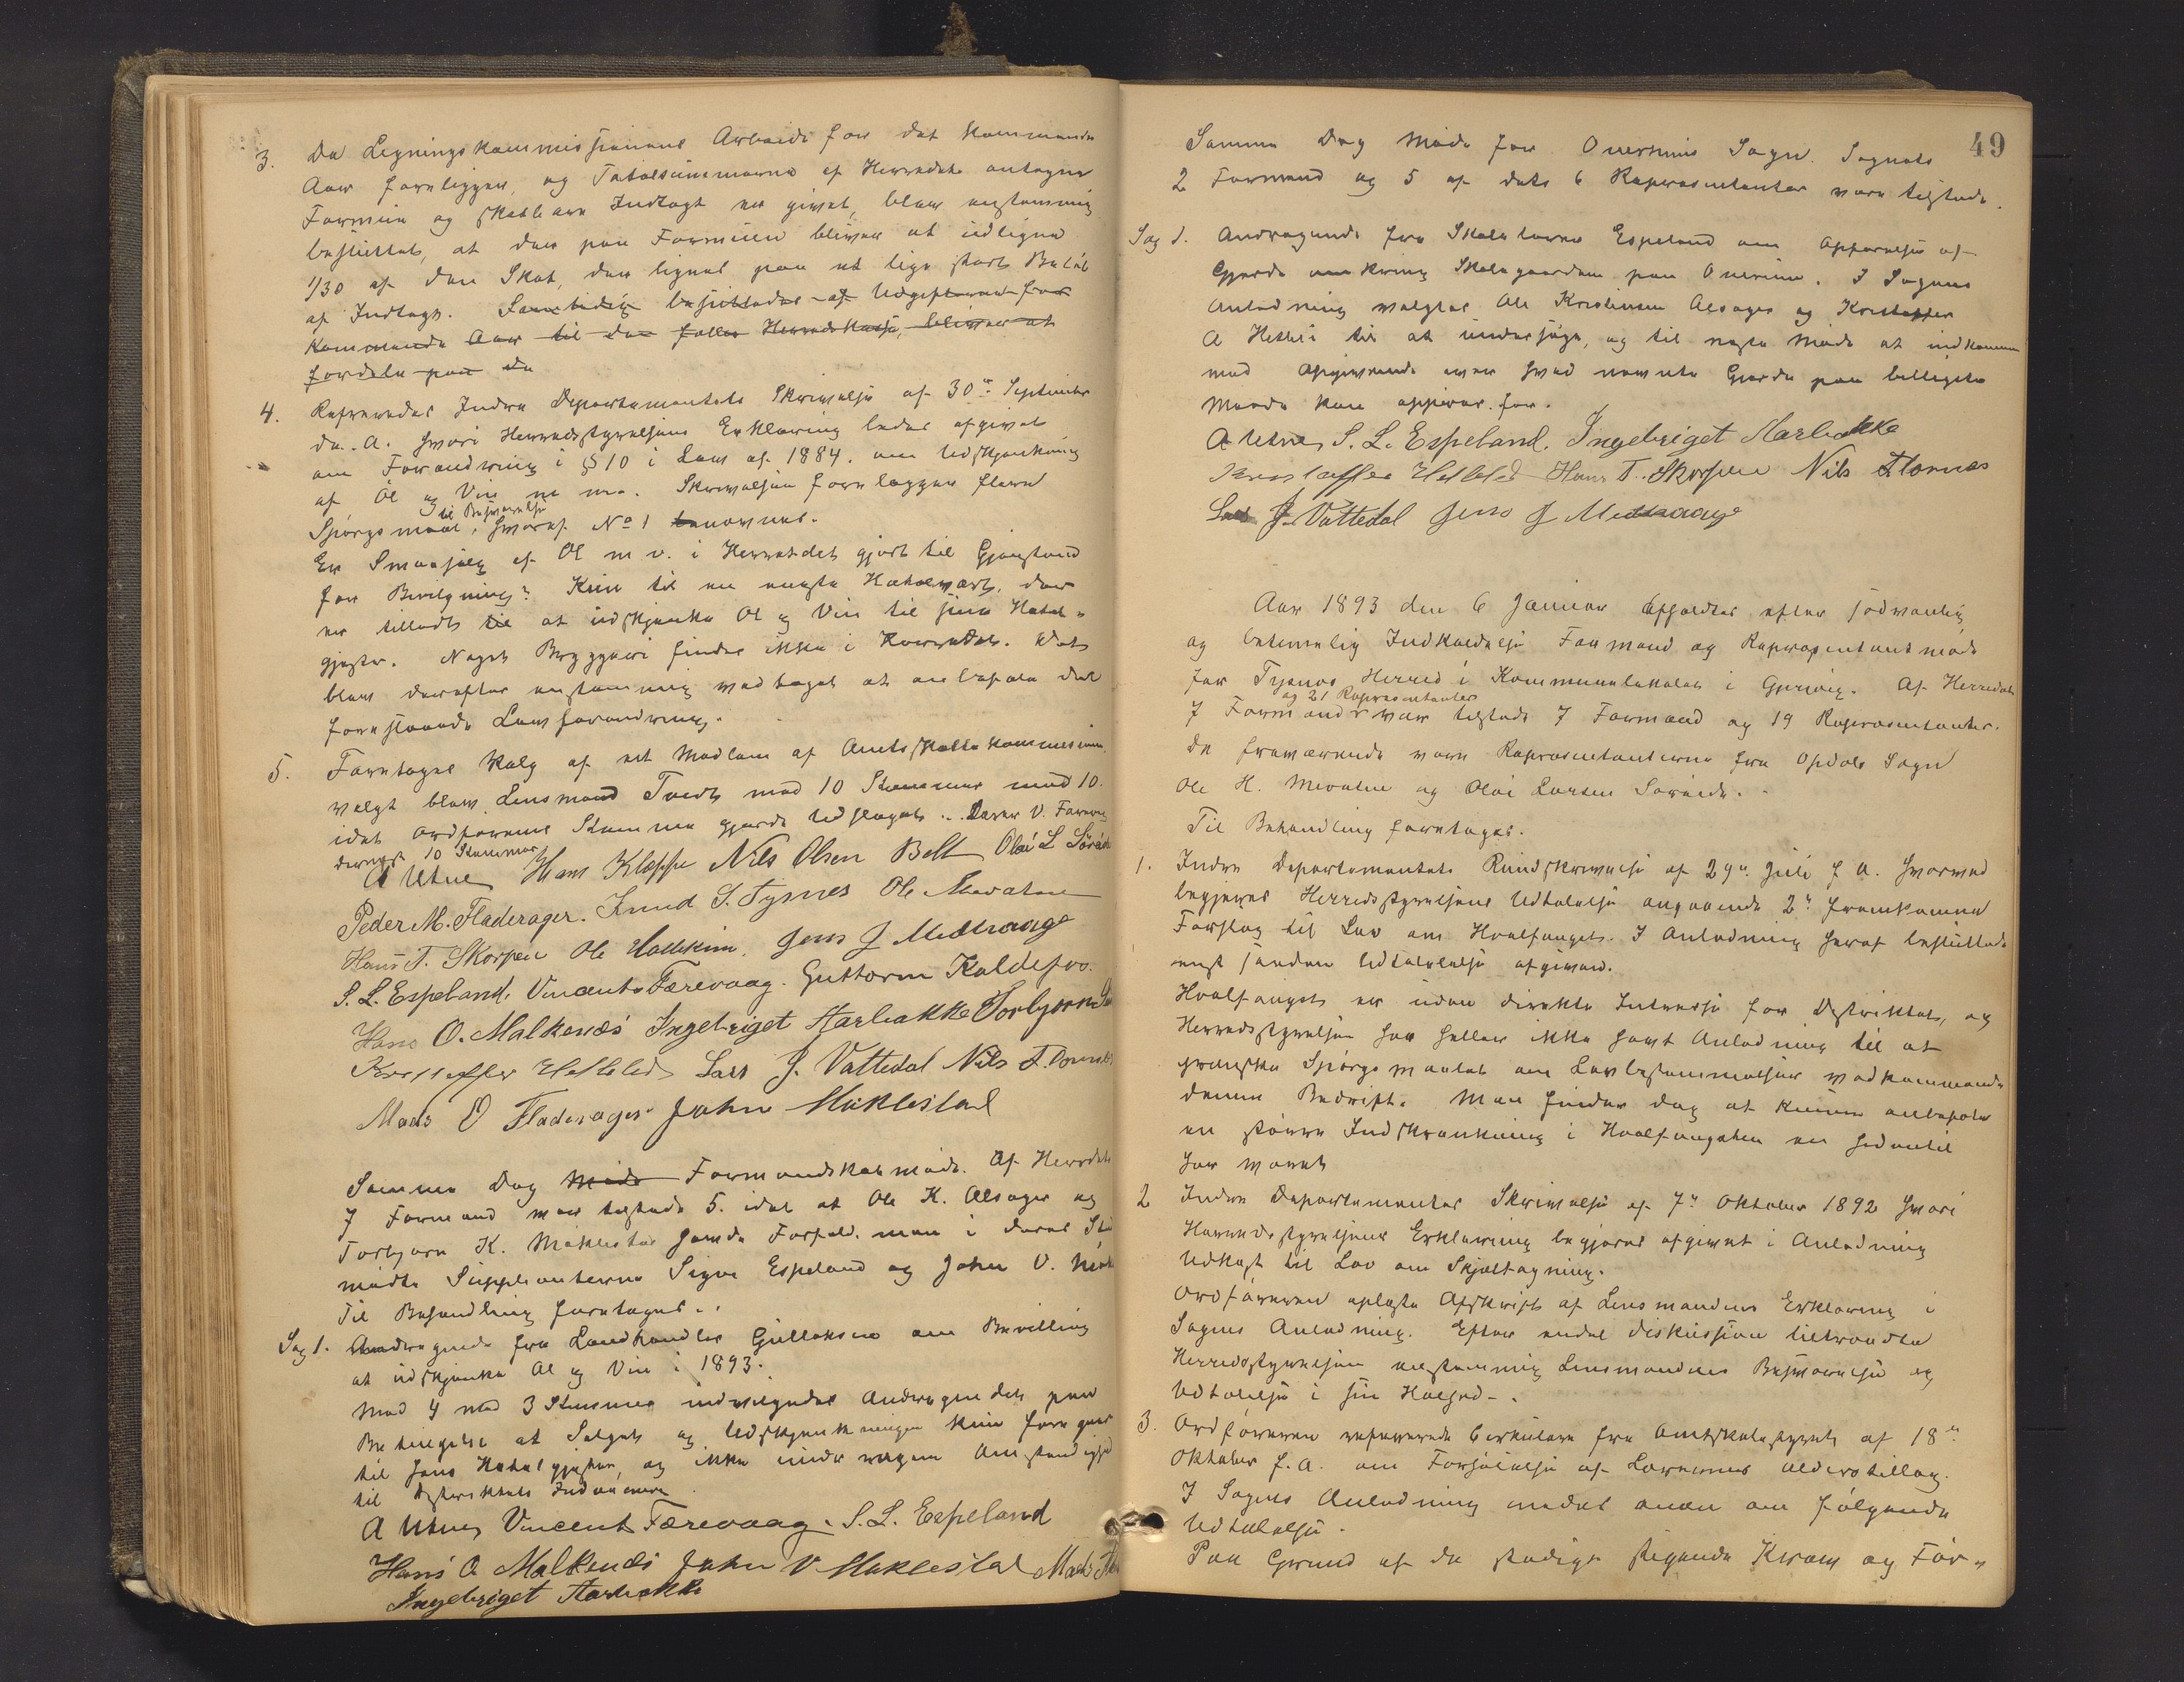 3. Da Ligningskommissionens Arbeide for det kommende
Aar foreligger, og Totalsummerne af Herredets antagne
Formue og skatbare Indtægt er givet, blev enstemmig
besluttet, at der paa Formuen bliver at udligne
1/30 af den Skat, der lignes paa et lige stort Beløb
af Indtægt. Samtidig besluttedes at Udgifterne for
kommende Aar til den fælles Herredskasse, bliver at
fordele paa de
4. Refereredes Indre Departementets Skrivelse af 30te September
d. A. hvori Herredsstyrelsens Erklæring bedes afgivet
om Forandring i § 10 i Lov af 1884. om Udskjænkning
af Öl og Vin m m. Skrivelsen forelægger flere
til Besvarelse
Spørgsmaal, hvoraf No 1 benævnes.
Er Smaasalg af Öl m v. i Herredet gjort til Gjenstand
for Bevilgning? Kun til en eneste Hotelvært, der
er tilladt til at udskjænke Öl og Vin til sine Hotel-
gjester. Noget Bryggeri findes ikke i Herredet. Det
blev derefter enstemmig vedtaget at anbefale den
forestaaende Lovforandring.
5. Foretoges Valg af et Medlem af Amtsskattekommissionen.
valgt blev Lensmand Tvedt med 10 Stemmer mod 10.
idet Ordførerens Stemme gjorde Udslaget. Lærer V. Færevaag
dernæst 10 Stemmer
A Utne Hans Kleppe Nils Olsen Belt Olai L Söreide
Peder M. Fladerager. Knud S. Tysnes Ole Mevatne
Hans T. Skorpen Ole Hallekim. Jens J Medhaug
S. L. Espeland, Vincents Færevaag. Guttorm Kaldefos.
Hans O. Malkenæs Ingebriget Aarbakke Torbjørn
Kristoffer Hetleli Lars J. Vattedal Nils T. Dommes
Mads O Fladerager John Møklestad
Samme Dag Møde Formandskabsmøde. Af Herredets
7 Formænd var tilstede 5. idet at Ole K. Alsager og
Torbjørn K. Møklestad havde Forfald. men i deres Sted
mødte Suppleanterne Sigve Espeland og John V. Møk
Til Behandling foretoges.
Sag 1. Andragende fra Landhandler Gullaksen om Bevilling
at udskjænke Öl og Vin i 1893.
Med 4 mod 3 Stemmer indvilgedes Andragendet paa
Betingelse at Salget og Udskjænkningen kun foregaar
til hans Hotelgjester, og ikke under nogen Omstændighed
til Distriktets Indvaanere
A Utne Vincent Færevaag. S. L. Espeland
Hans O Malkenæs John V Møklestad Mads
Ingebriget Aarbakke
49
Samme Dag Møde for Onerheims Sogn. Sognets
2 Formænd og 5 af dets 6 Repræsentanter vare tilstede.
Sag 1. Andragende fra Skolelærer Espeland om Opførelse af
Gjerde omkring Skolegaarden paa Onerheim. I Sagens
Anledning valgtes Ole Kristensen Alsager og Kristoffer
A Hetleli til at undersøge, og til næste Møde at indkomme
med Opgivende over hvad nævnte Gjerde paa billigste
Maade kan opføres for.
A Utne, S. L. Espeland. Ingebriget Aarbakke
Kristoffer Hetleli Hans T. Skorpen Nils Flornæs
Lars J. Vattedal Jens J Medhaug
Aar 1893 den 6 Januar afholdtes efter sædvanlig
og betimelig Indkaldelse Formand og Repræsentantmøde
for Tysnes Herred i Kommunelokalet i Gjerviq. Af Herredets
og 21 Repræsentanter
7 Formænd var tilstede 7 Formænd og 19 Repræsentanter.
De fraværende vare Repræsentanterne fra Opdals Sogn
Ole H. Mevatne og Olai Larsen Søreide.
Til Behandling foretoges.
1. Indre Departementets Rundskrivelse af 29de Juli f A. hvorved
begjæres Herredsstyrelsens Udtalelse angaaende 2de fremkomne
Forslag til Lov om Hvalfangst. I Anledning heraf besluttedes
enst saaden Udtalelse afgiven.
Hvalfangst er uden direkte Interesse for Distriktet, og
Herredsstyrelsen har heller ikke havt Anledning til at
granske Spørgsmaalet om Lovbestemmelser vedkommende
denne Bedrift. Man finder dog at kunne anbefale
en større Indskrænkning i Hvalfangsten en hidentil
har været
2 Indre Departementets Skrivelse af 7de Oktober 1892 hvori
Herredsstyrelsens Erklæring begjæres afgivet i Anledning
Udkast til Lov om Skjæltagning.
Ordføreren oplæste Afskrift af Lensmandens Erklæring i
Sagens Anledning. Efter endel Diskussion tiltraadte
Herredsstyrelsen enstemmig Lensmandens Besvarelse og
Udtalelse i sin Helhed.
3. Ordføreren refererede Cirkulære fra Amtsskolestyret af 18de
Oktober f. A. om Forhøielse af Lærernes Alderstillæg.
I Sagens Anledning enedes man om følgende
Udtalelse.
Paa Grund af de stadige stigende Krav og For-